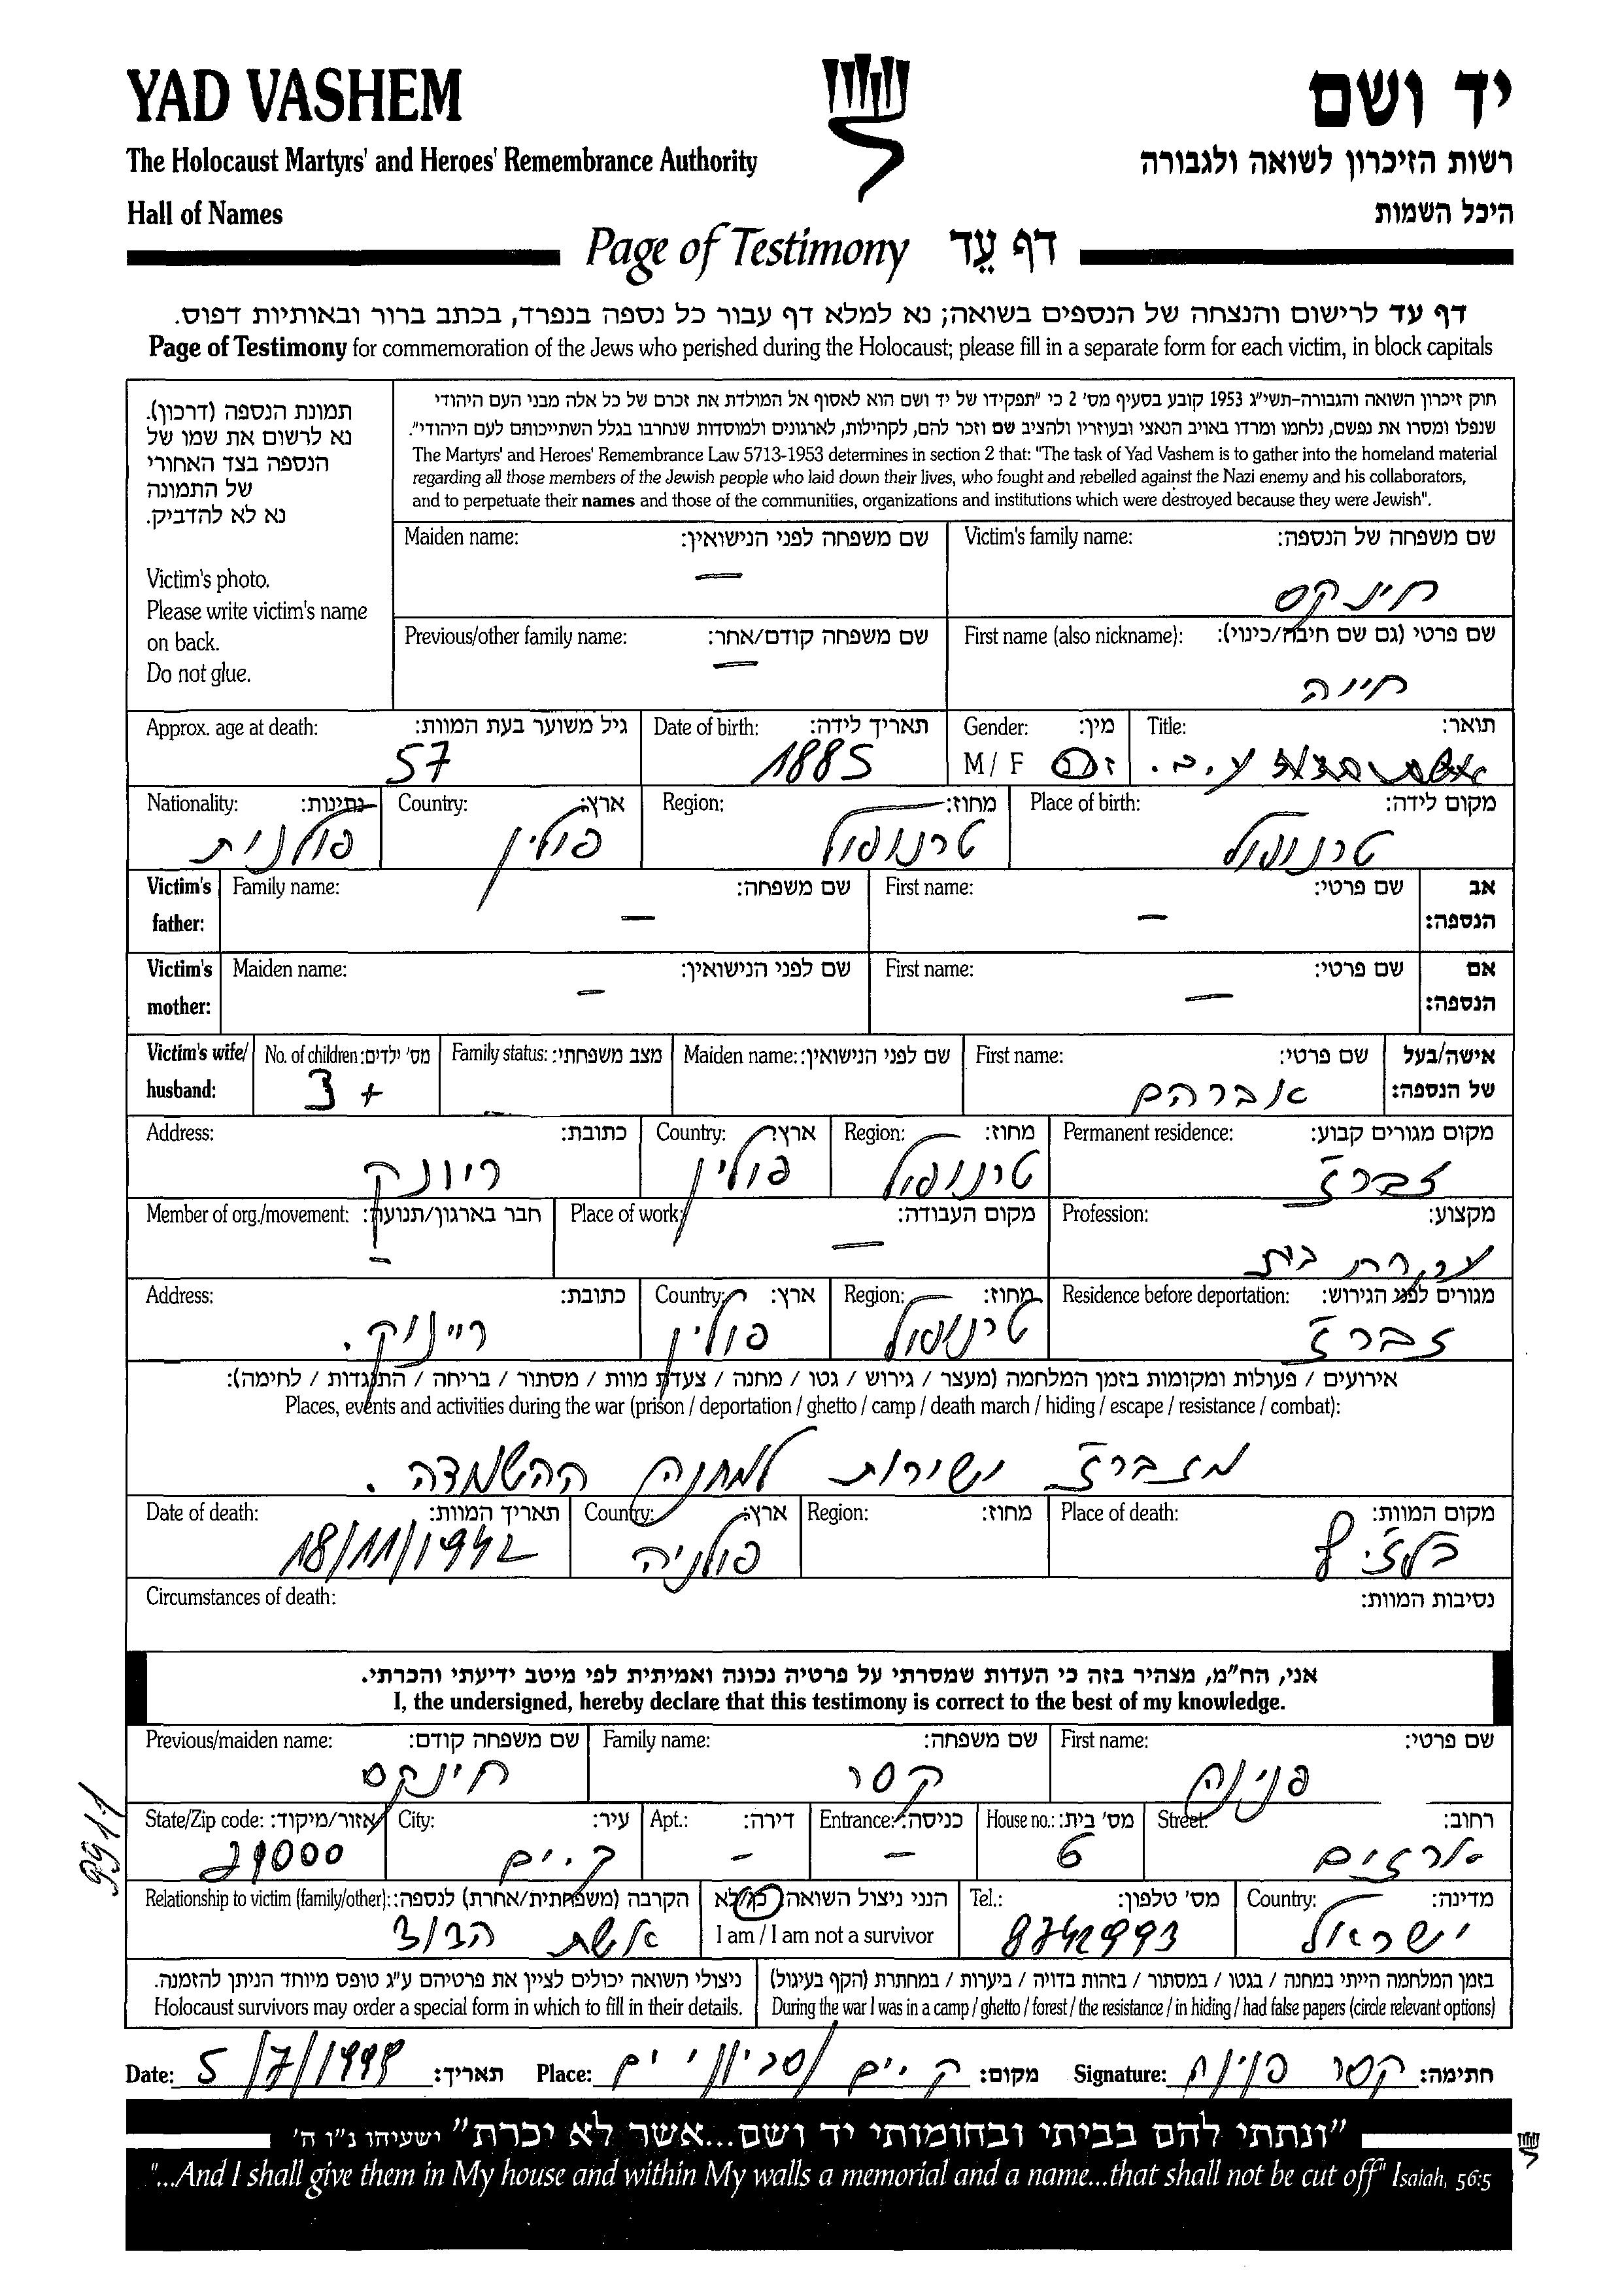 YAD VASHEM
יד ושם
The Holocaust Martyrs' and Heroes' Remembrance Authority
רשות הזיכרון לשואה ולגבורה
Hall of Names
היכל השמות
Page of Testimony דף עֵד
דף עד לרישום והנצחה של הנספים בשואה; נא למלא דף עבור כל נספה בנפרד, בכתב ברור ובאותיות דפוס.
Page of Testimony for commemoration of the Jews who perished during the Holocaust; please fill in a separate form for each victim, in block capitals
תמונת הנספה (דרכון).
נא לרשום את שמו של
הנספה בצד האחורי
של התמונה
נא לא להדביק.
Victim's photo.
Please write victim's name
on back.
Do not glue.
חוק זיכרון השואה והגבורה-תשי"ג 1953 קובע בסעיף מס' 2 כי "תפקידו של יד ושם הוא לאסוף אל המולדת את זכרם של כל אלה מבני העם היהודי
שנפלו ומסרו את נפשם, נלחמו ומרדו באויב הנאצי ובעוזריו ולהציב שם וזכר להם, לקהילות, לארגונים ולמוסדות שנחרבו בגלל השתייכותם לעם היהודי".
The Martyrs' and Heroes' Remembrance Law 5713-1953 determines in section 2 that: "The task of Yad Vashem is to gather into the homeland material
regarding all those members of the Jewish people who laid down their lives, who fought and rebelled against the Nazi enemy and his collaborators,
and to perpetuate their names and those of the communities, organizations and institutions which were destroyed because they were Jewish".
Victim's family name: שם משפחה של הנספה:
חינקס
Maiden name: שם משפחה לפני הנישואין:
—
First name (also nickname): שם פרטי (גם שם חיבה/כינוי):
חיינה
Previous/other family name: שם משפחה קודם/אחר:
—
Title: תואר:
Gender: מין:
M / F ז/נ
Date of birth: תאריך לידה:
1885
Approx. age at death: גיל משוער בעת המוות:
57
Place of birth: מקום לידה:
טרנופול
Region: מחוז:
טרנופול
Country: ארץ:
פולין
Nationality: נתינות:
פולנית
Victim's father: אב הנספה:
First name: שם פרטי:
—
Family name: שם משפחה:
—
Victim's mother: אם הנספה:
First name: שם פרטי:
—
Maiden name: שם לפני הנישואין:
—
Victim's wife/ husband: אישה/בעל של הנספה:
First name: שם פרטי:
אברהם
Maiden name: שם לפני הנישואין:
Family status: מצב משפחתי:
No. of children: מס' ילדים:
3 +
Permanent residence: מקום מגורים קבוע:
זברז'
Region: מחוז:
טרנופול
Country: ארץ:
פולין
Address: כתובת:
רינוק
Profession: מקצוע:
עקרת בית
Place of work: מקום העבודה:
—
Member of org./movement: חבר בארגון/תנועה:
—
Residence before deportation: מגורים לפני הגירוש:
זברז'
Region: מחוז:
טרנופול
Country: ארץ:
פולין
Address: כתובת:
ריינוק.
אירועים / פעולות ומקומות בזמן המלחמה (מעצר / גירוש / גטו / מחנה / צעדת מוות / מסתור / בריחה / התנגדות / לחימה):
Places, events and activities during the war (prison / deportation / ghetto / camp / death march / hiding / escape / resistance / combat):
מזברז' ישירות למחנה ההשמדה.
Place of death: מקום המוות:
Region: מחוז:
Country: ארץ:
פולניה
Date of death: תאריך המוות:
18/11/1942
Circumstances of death: נסיבות המוות:
אני, הח"מ, מצהיר בזה כי העדות שמסרתי על פרטיה נכונה ואמיתית לפי מיטב ידיעתי והכרתי.
I, the undersigned, hereby declare that this testimony is correct to the best of my knowledge.
First name: שם פרטי:
פנינה
Family name: שם משפחה:
קסר
Previous/maiden name: שם משפחה קודם:
חינקס
Street: רחוב:
ארזים
House no.: מס' בית:
6
Entrance: כניסה:
—
Apt.: דירה:
—
City: עיר:
ק. ים
State/Zip code: אזור/מיקוד:
29000
9911
Country: מדינה:
ישראל
Tel.: מס' טלפון:
8742993
הנני ניצול השואה: כן/לא
I am / I am not a survivor
Relationship to victim (family/other): הקרבה (משפחתית/אחרת) לנספה:
אשת הבן
בזמן המלחמה הייתי במחנה / בגטו / במסתור / בזהות בדויה / ביערות / במחתרת (הקף בעיגול)
During the war I was in a camp / ghetto / forest / the resistance / in hiding / had false papers (circle relevant options)
ניצולי השואה יכולים לציין את פרטיהם ע"ג טופס מיוחד הניתן להזמנה.
Holocaust survivors may order a special form in which to fill in their details.
Date: 5/7/1999 תאריך: Place: ק. ים /סביוני ים מקום: Signature: קסר פנינה חתימה:
"ונתתי להם בביתי ובחומותי יד ושם...אשר לא יכרת" ישעיהו נ"ו ה'
"...And I shall give them in My house and within My walls a memorial and a name...that shall not be cut off" Isaiah, 56:5